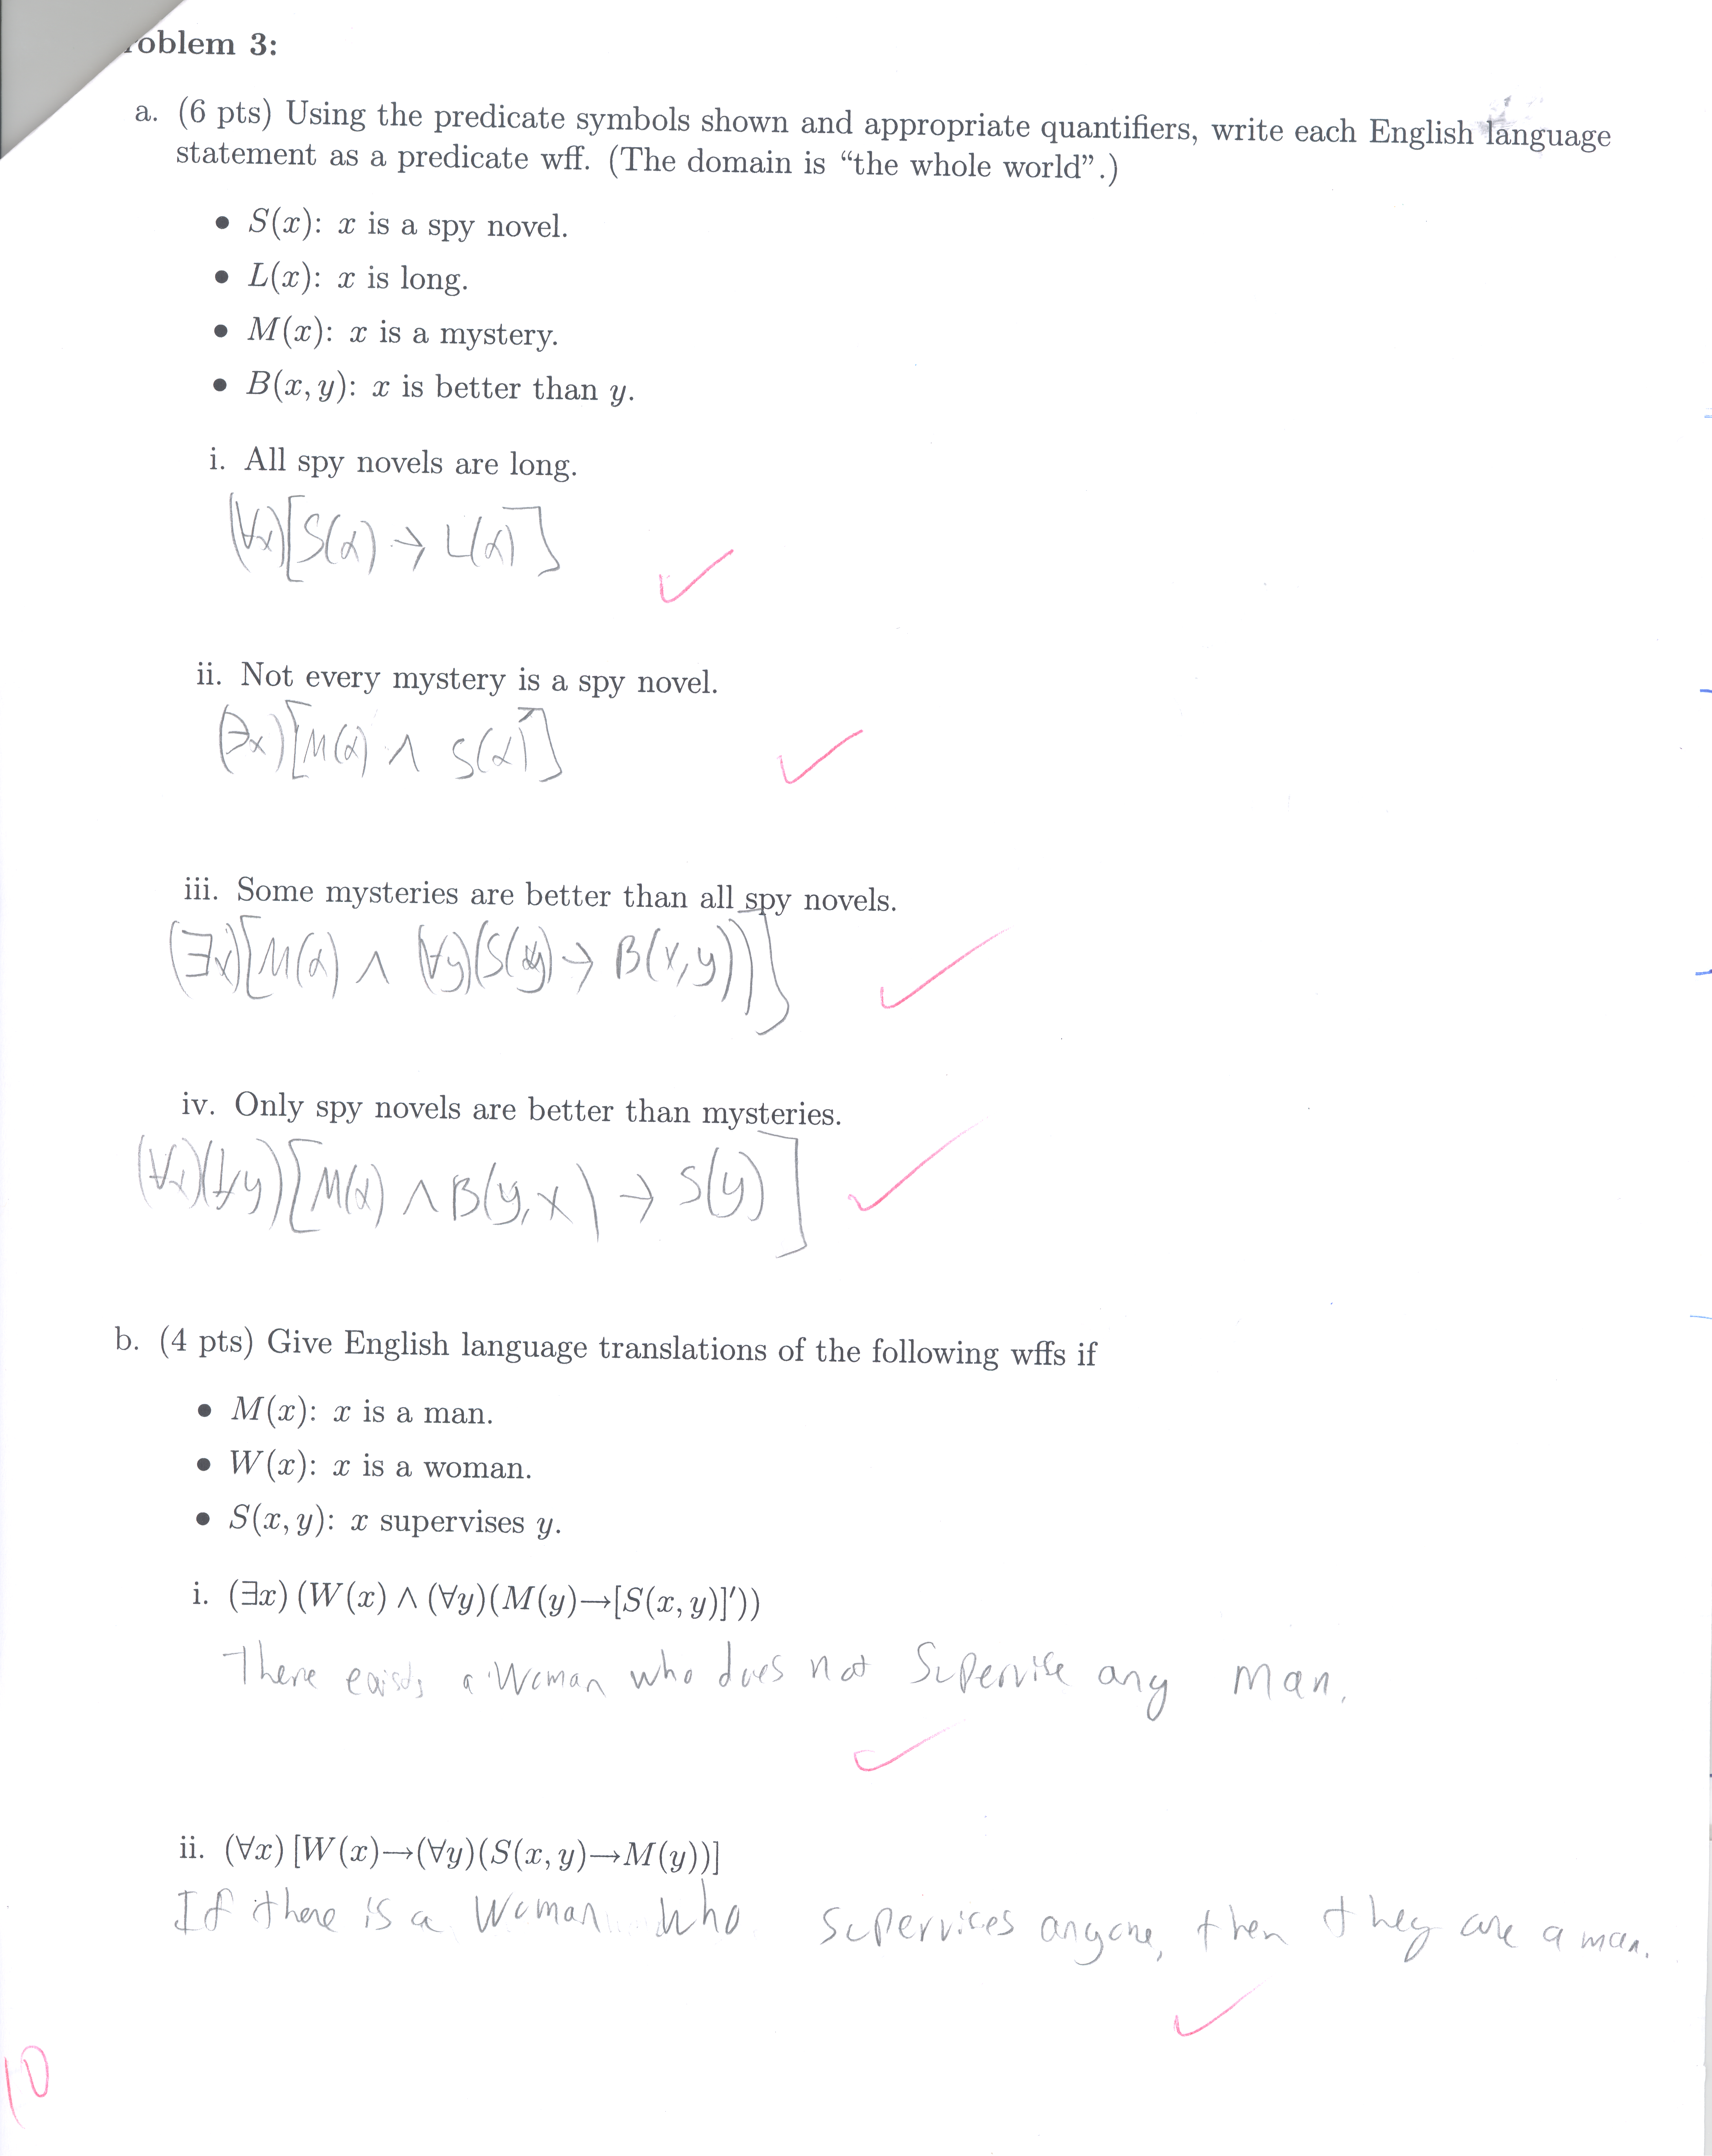 roblem 3:
a. (6 pts) Using the predicate symbols shown and appropriate quantifiers, write each English language
statement as a predicate wff. (The domain is “the whole world”.)
• S(x): x is a spy novel.
• L(x): x is long.
• M(x): x is a mystery.
• B(x, y): x is better than y.
i. All spy novels are long.
(∀x)[S(x) → L(x)]
ii. Not every mystery is a spy novel.
(∃x)[M(x) ∧ S(x)']
iii. Some mysteries are better than all spy novels.
(∃x)[M(x) ∧ (∀y)(S(y) → B(x,y))]
iv. Only spy novels are better than mysteries.
(∀x)(∀y)[M(x) ∧ B(y,x) → S(y)]
b. (4 pts) Give English language translations of the following wffs if
• M(x): x is a man.
• W(x): x is a woman.
• S(x, y): x supervises y.
i. (∃x) (W(x) ∧ (∀y)(M(y)→[S(x, y)]′))
There exists a Woman who does not Supervise any man.
ii. (∀x) [W(x)→(∀y)(S(x, y)→M(y))]
If there is a Woman who supervices anyone, then they are a man.
10